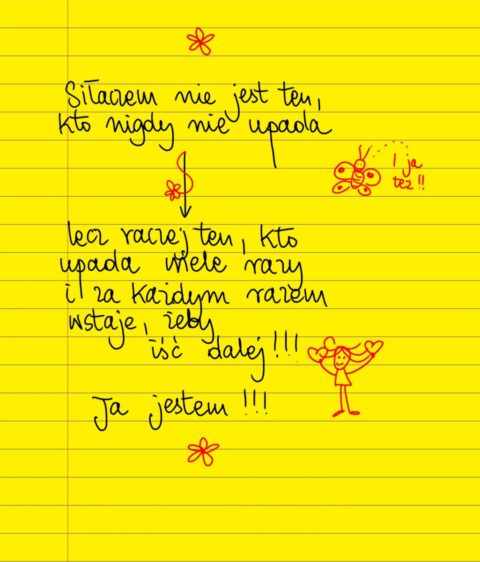 Siłaczem nie jest ten,
kto nigdy nie upada
I ja
też!!
lecz raczej ten, kto
upada wiele razy
i za każdym razem
wstaje, żeby
iść dalej!!!
Ja jestem!!!